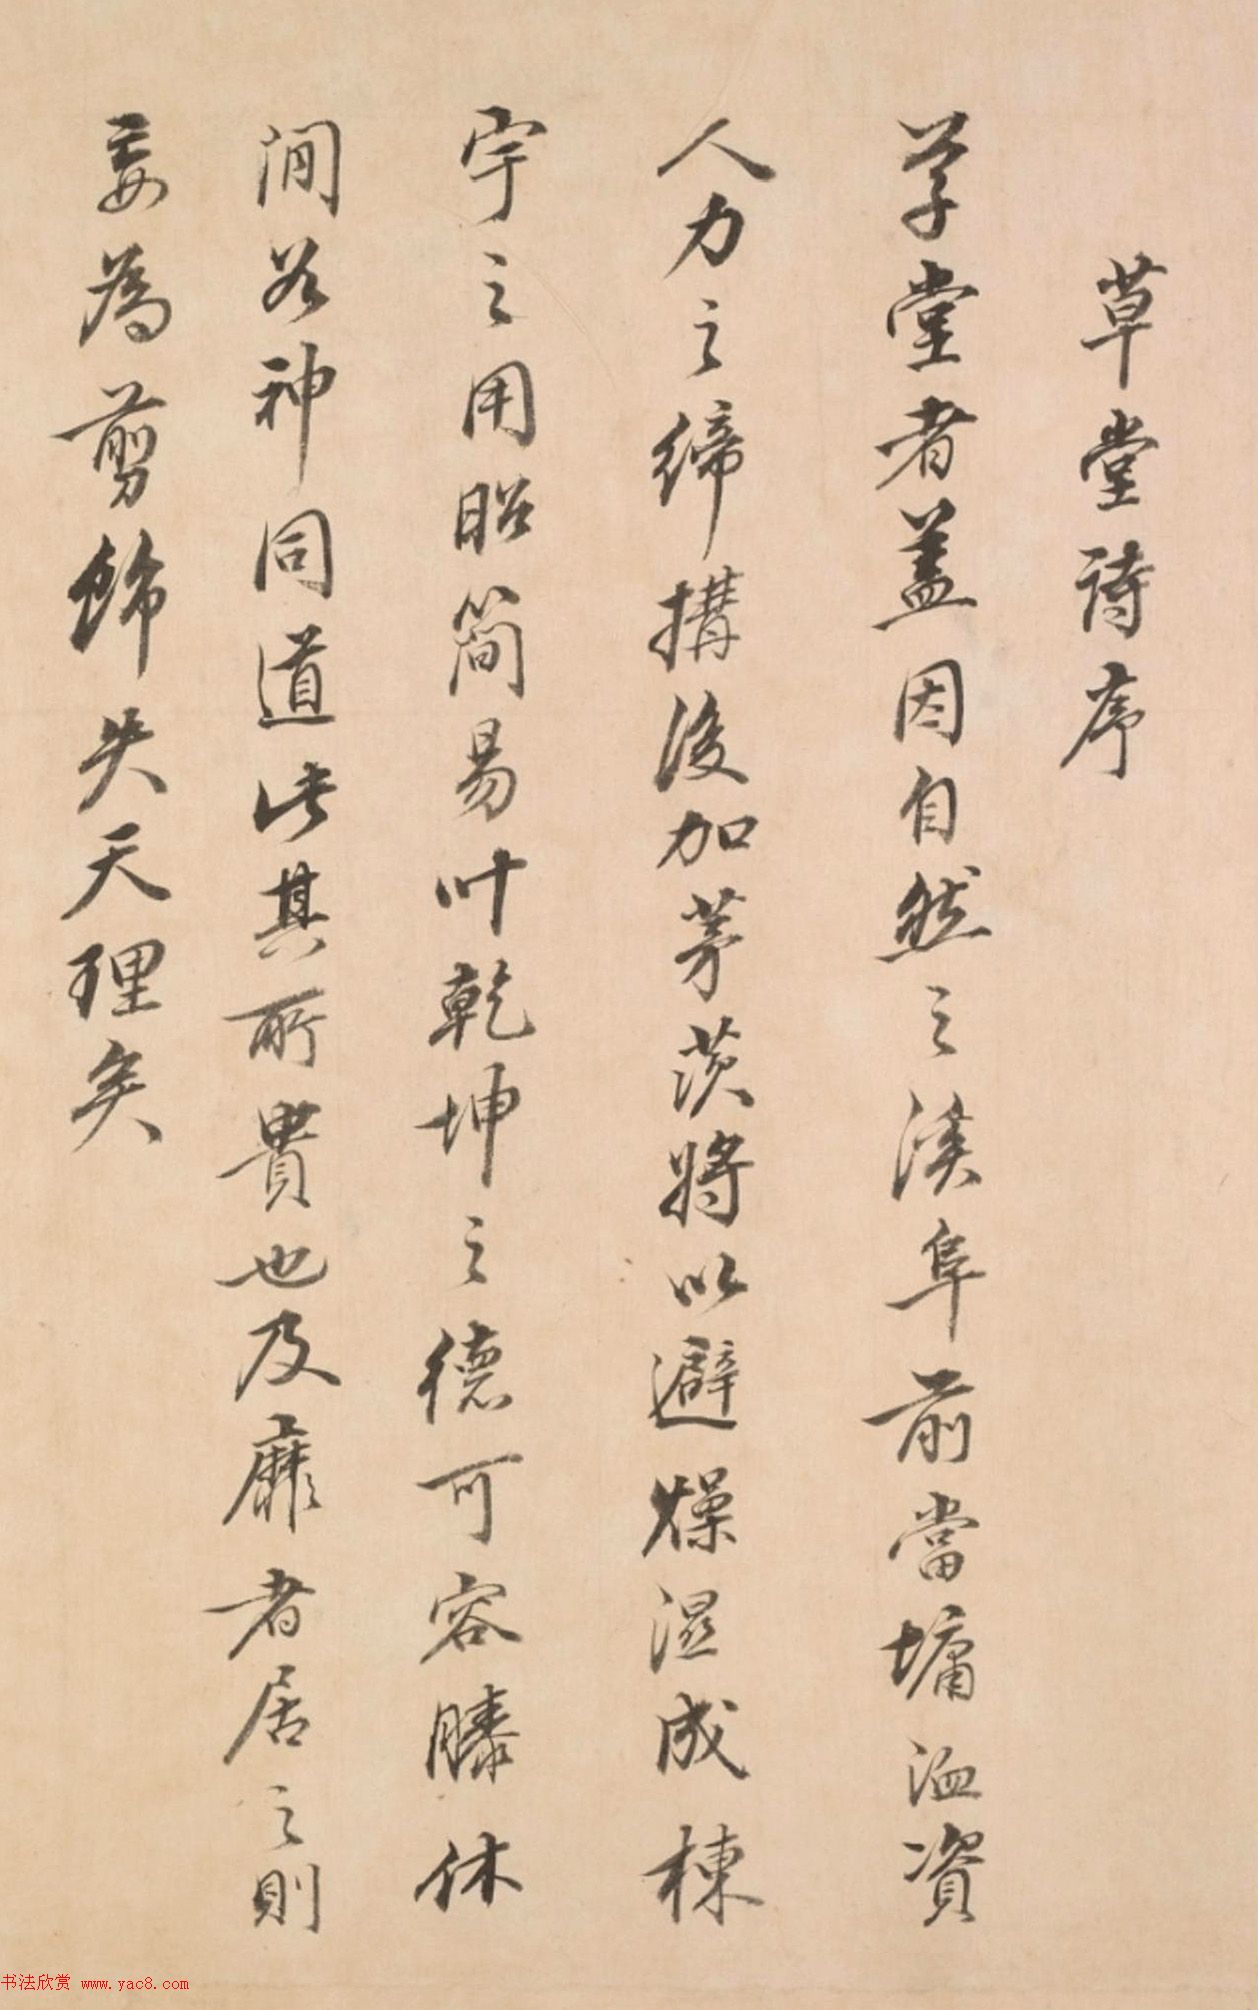 草堂诗序
草堂者盖因自然之溪阜前當墉洫資
人力之締搆後加茅茨將以避燥濕成棟
宇之用昭简易叶乾坤之德可容膝休
閒谷神同道此其所貴也及靡者居之則
妄為剪飾失天理矣
书法欣赏 www.yac8.com